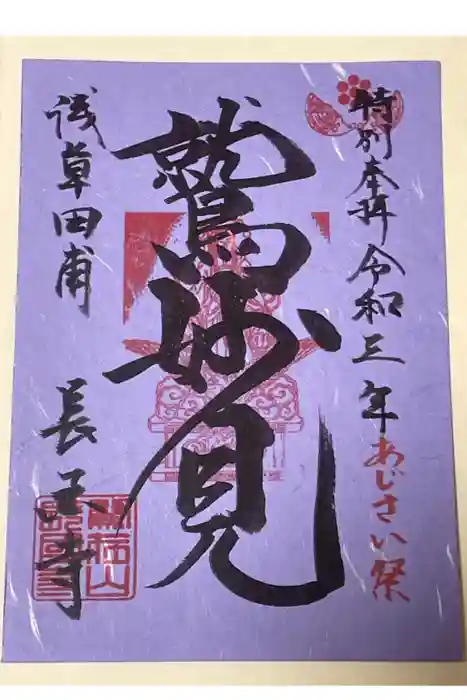 特別奉拝令和三年あじさい祭
鷲妙見
浅草田甫
長国寺